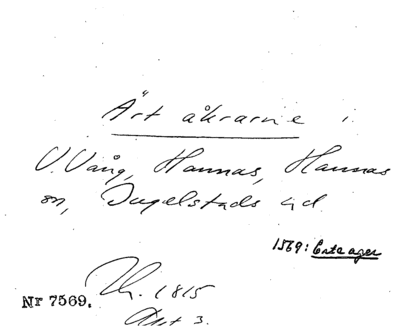 Ärt åkrarne i
V. Vång, Hannas, Hannas
sn, Ingelstads hd.
1569: Erte ager
Nr 7569. Lh. 1815
Akt 3.